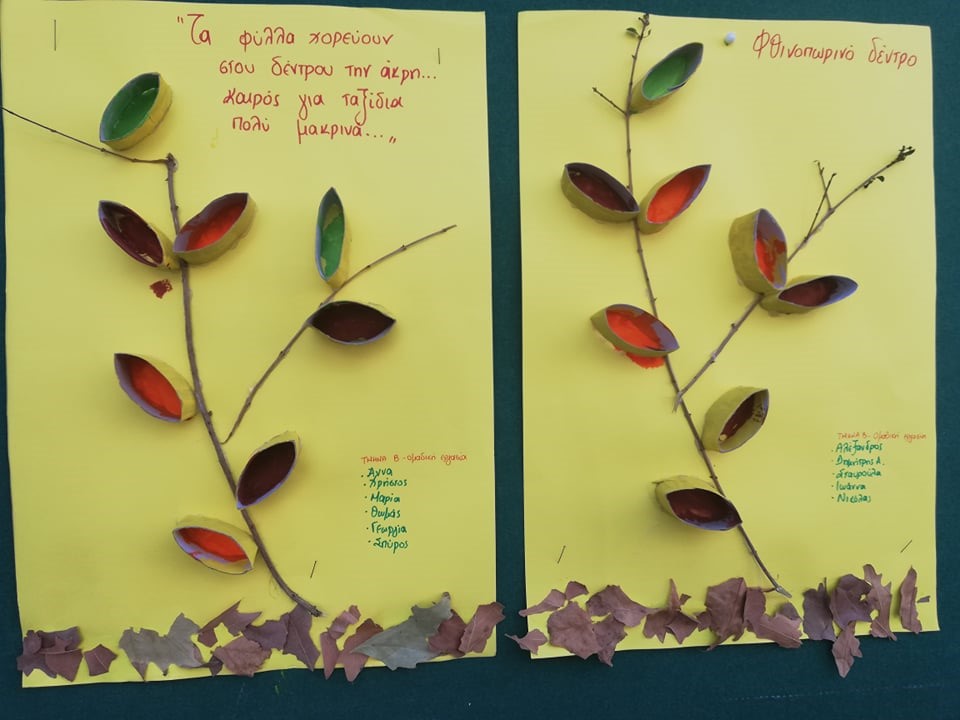 "Τα φύλλα χορεύουν
στου δέντρου την άκρη...
Καιρός για ταξίδια
πολύ μακρινά..."
ΤΜΗΜΑ Β - Ομαδική εργασία
· Άννα
· Χρήστος
· Μαρία
· Θωμάς
· Γεωργία
· Σπύρος
Φθινοπωρινό δέντρο
ΤΜΗΜΑ Β - Ομαδική εργασία
· Αλέξανδρος
· Δημήτρης Λ.
· Σταυρούλα
· Ιωάννα
· Νικόλας